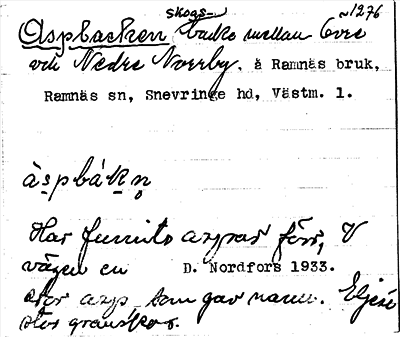 skogs- ~1276
Aspbacken, backe mellan Övre
och Nedre Norrby, å Ramnäs bruk,
Ramnäs sn, Snevringe hd, Västm. l.
àspbákn̥
Har funnits aspar förr, V
vägen en D. Nordfors 1933.
stor asp som gav namn. Eljest
stor granskog.